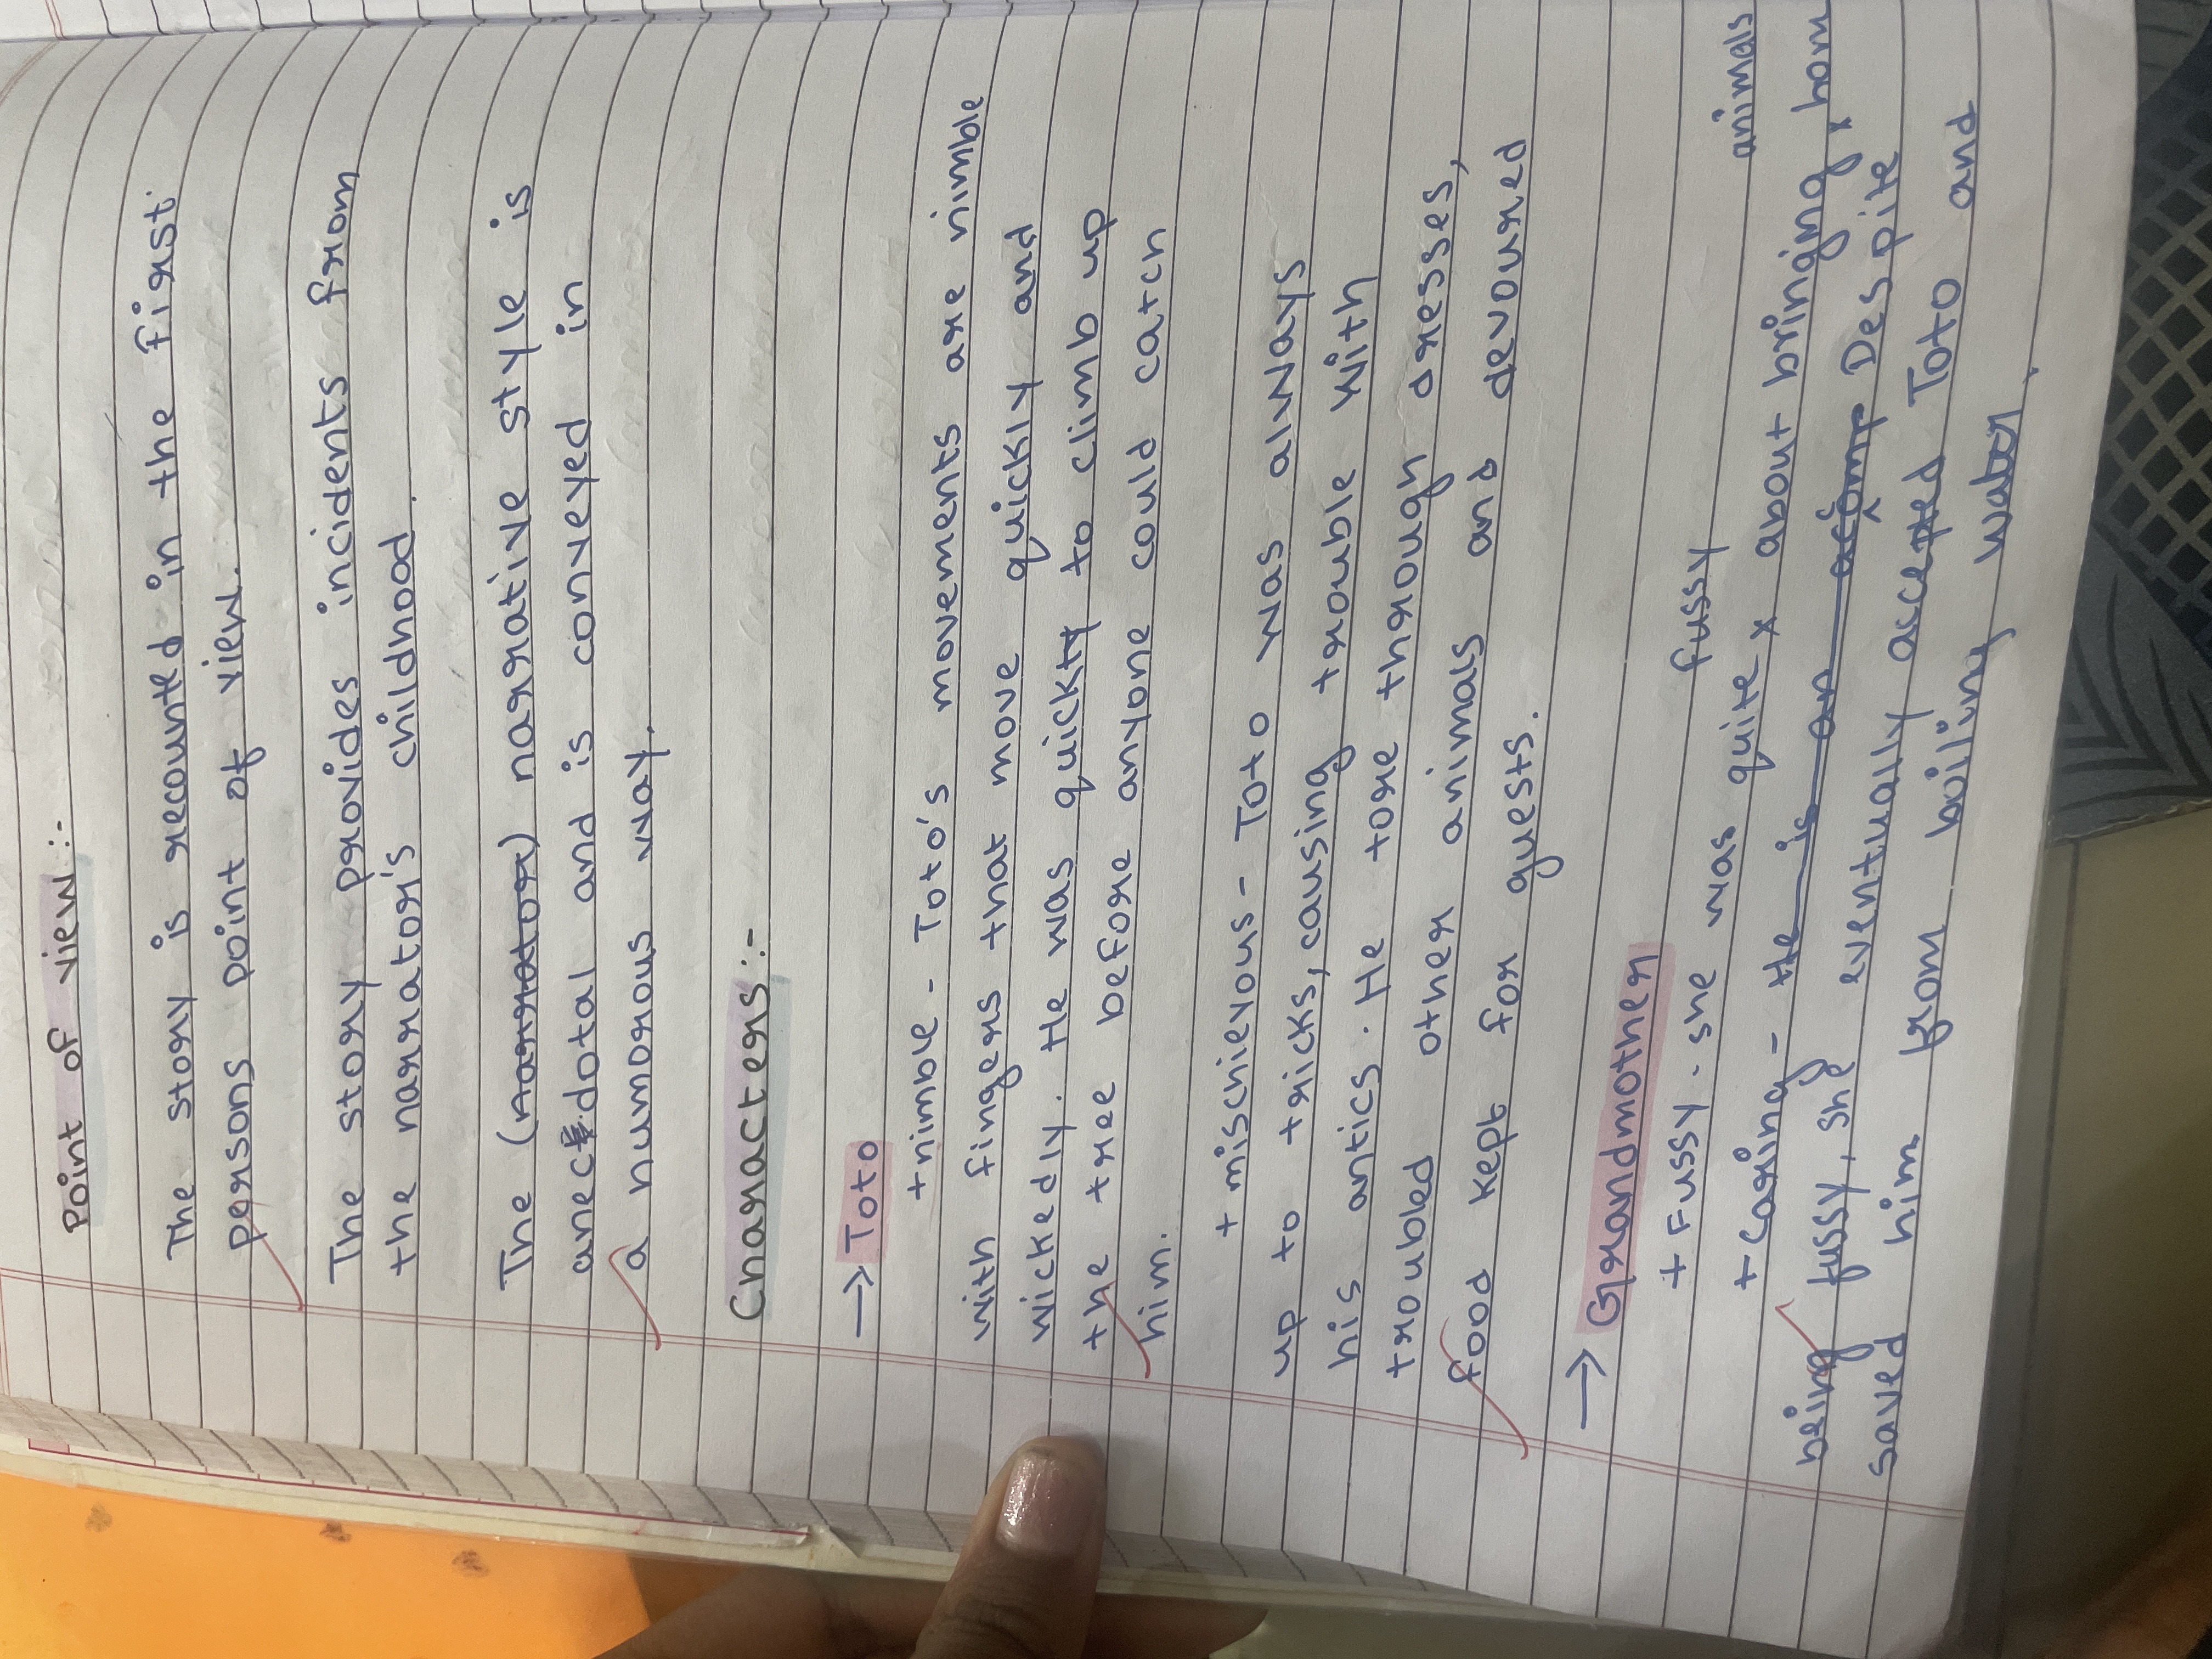 Point of view :-
The story is recounted in the first
persons point of view.
The story provides incidents from
the narrator's childhood.
The (narrator) narrative style is
anecdotal and is conveyed in
a humorous way.
Characters :-
→ Toto
+ nimble - Toto's movements are nimble
with fingers that move quickly and
wickedly. He was quickly to climb up
the tree before anyone could catch
him.
+ mischievous - Toto was always
up to tricks, causing trouble with
his antics. He tore through dresses,
troubled other animals and devoured
food kept for guests.
→ Grandmother
fussy animals
+ Fussy. She was quite x about bringing x hom
+ Caring - He is an Despite
being fussy, she eventually accepted Toto and
saved him from boiling water.